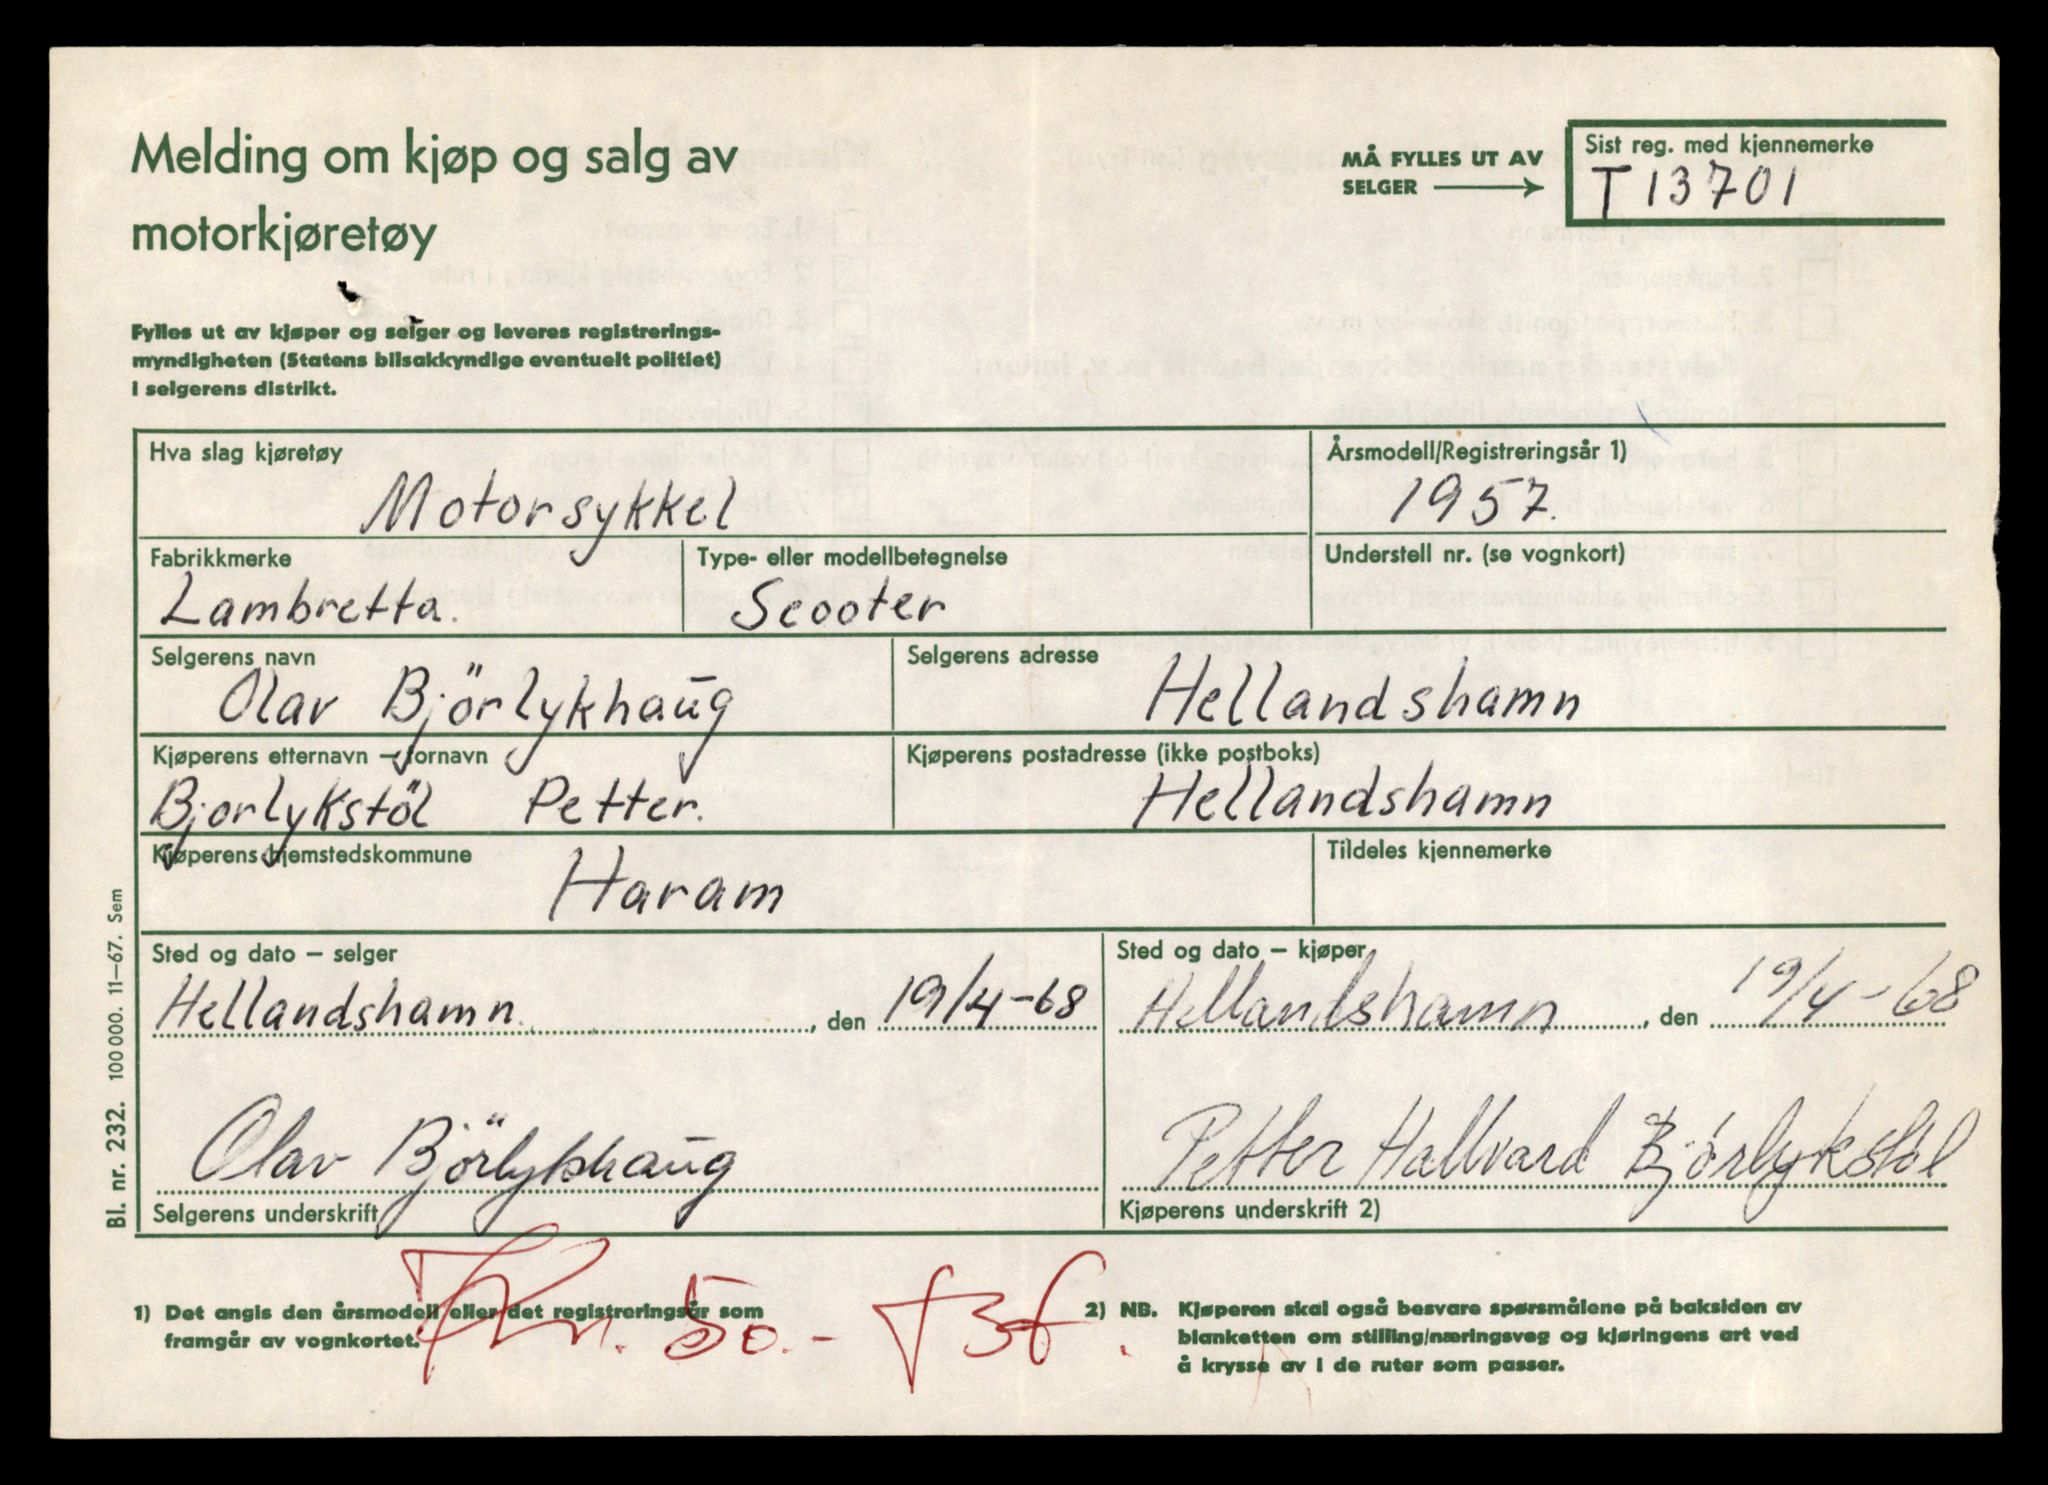 Melding om kjøp og salg av
motorkjøretøy
MÅ FYLLES UT AV
SELGER
Sist reg. med kjennemerke
T 13701
Fylles ut av kjøper og selger og leveres registrerings-
myndigheten (Statens bilsakkyndige eventuelt politiet)
i selgerens distrikt.
Hva slag kjøretøy
Motorsykkel
Årsmodell/Registreringsår 1)
1957.
Fabrikkmerke
Lambretta.
Type- eller modellbetegnelse
Scooter
Understell nr. (se vognkort)
Selgerens navn
Olav Björlykhaūg
Selgerens adresse
Hellandshamn
Kjøperens etternavn – fornavn
Bjorlykstöl Petter.
Kjøperens postadresse (ikke postboks)
Hellandshamn
Kjøperens hjemstedskommune
Haram
Tildeles kjennemerke
Sted og dato – selger
Hellandshamn, den 19/4-68
Sted og dato – kjøper
Hellandshamn, den 19/4-68
Olav Björlykhaūg
Selgerens underskrift
Petter Hallvard Bjórlykstól
Kjøperens underskrift 2)
Bl. nr. 232. 100 000. 11–67. Sem
Kr. 50.-
1) Det angis den årsmodell eller det registreringsår som
framgår av vognkortet.
2) NB. Kjøperen skal også besvare spørsmålene på baksiden av
blanketten om stilling/næringsveg og kjøringens art ved
å krysse av i de ruter som passer.